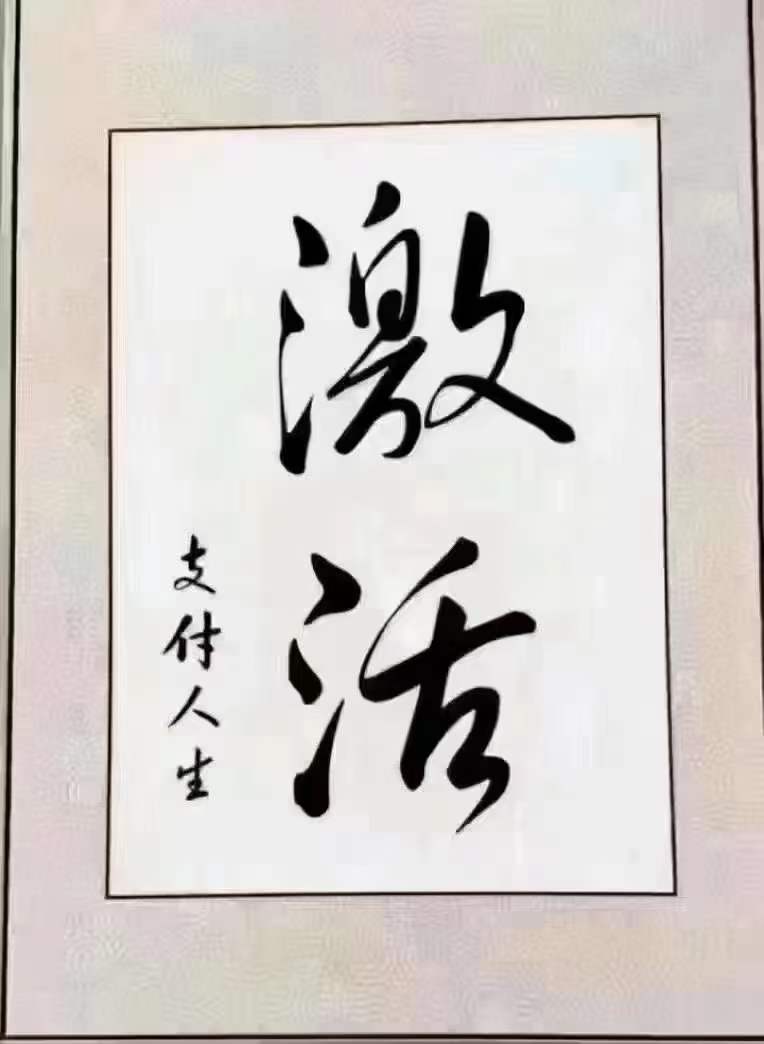 激活
支付人生